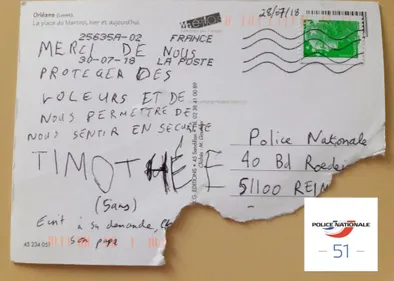 Orléans (Loiret).
La place du Martroi, hier et aujourd'hui.
28/07/18
25635A-02 FRANCE
MERCI DE NOUS
30-07-18 LA POSTE
PROTEGER DES
VOLEURS ET DE
NOUS PERMETTRE DE
NOUS SENTIR EN SECURITE
TIMOTHÉE
(5ans)
Ecrit à sa demande,
son papa
45 234 051
Police Nationale
40 Bd Roede
51100 REIM
POLICE NATIONALE
- 51 -